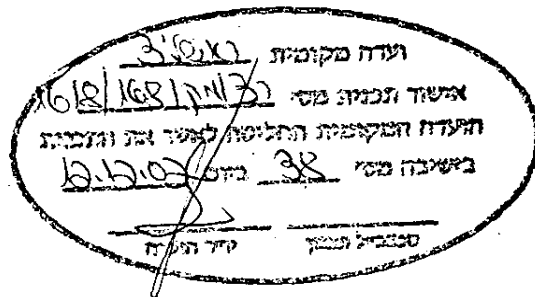 ועדה מקומית ראשל"צ
אישור תכנית מס' רצ/מק/168/8/16
הועדה המקומית החליטה לאשר את התכנית
בישיבה מס' 38 ביום 12.12.02
סמנכ"ל תכנון יו"ר הועדה